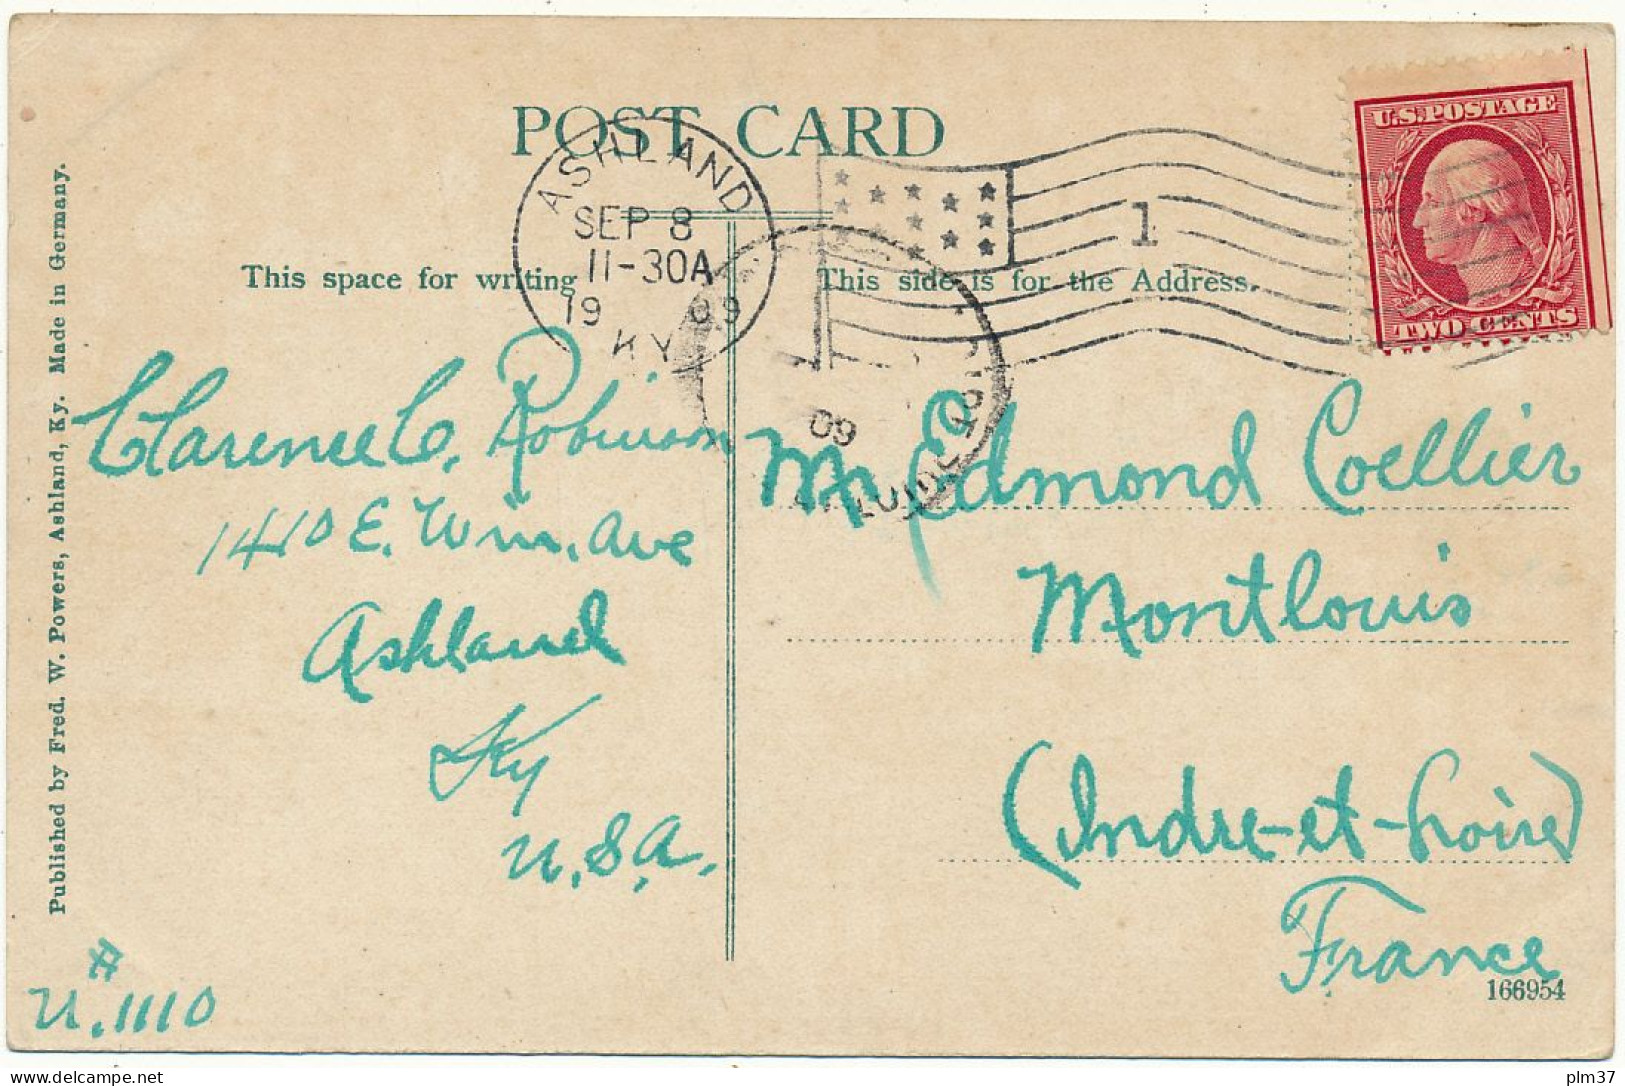 POST CARD
U.S. POSTAGE
TWO CENTS
ASHLAND
SEP 8
11-30A
1909
KY
1
This space for writing
This side is for the Address.
Published by Fred. W. Powers, Ashland, Ky. Made in Germany.
Clarence C. Robinson
1410 E. Win. Ave
Ashland
Ky
U.S.A.
U. 1110
09
Mr Edmond Coellier
Montlouis
(Indre-et-Loire)
France
166954
plm37
www.delcampe.net